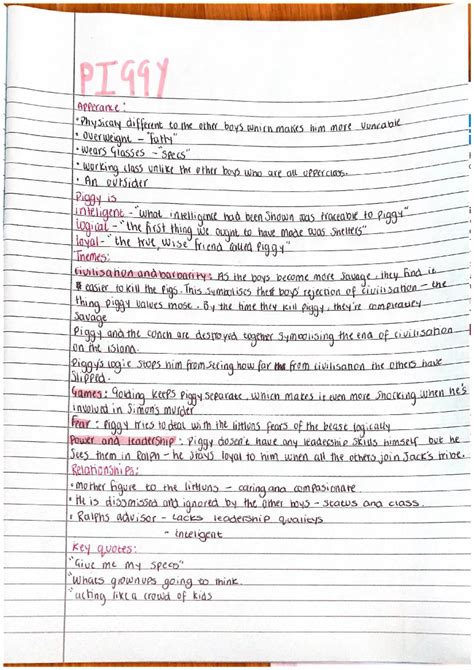 PIGGY
Apperance:
• Physicaly different to the other boys which makes him more vunrable
• overweight - "Fatty"
• wears Glasses - "specs"
• working class unlike the other boys who are all upperclass.
• An outsider
Piggy is
inteligent - "what intelligence had been shown was traceable to Piggy"
Logical - "the first thing we ought to have made was shelters"
loyal - "the true, wise friend called piggy"
Themes:
civilisation and barbarity: As the boys become more savage, they find it
easier to kill the pigs. This symbolises the boys rejection of civilisation - the
thing piggy values most. By the time they kill piggy, they're completley
savage
Piggy and the conch are destroyed together symbolising the end of civilisation
on the island.
Piggy's logic stops him from seeing how far from civilisation the others have
slipped.
Games: Golding keeps piggy separate, which makes it even more shocking when he's
involved in Simon's murder
Fear: Piggy tries to deal with the littluns fears of the beast logically
Power and leadership: Piggy doesn't have any leadership skills himself but he
sees them in Ralph - he stays loyal to him when all the others join Jack's tribe.
Relationships:
• mother figure to the littluns - caring and compasionate
• He is dissmissed and ignored by the other boys - status and class.
• Ralphs advisor - Lacks leadership qualitys
- inteligent
Key quotes:
"Give me my specs"
"Whats grownups going to think.
"acting like a crowd of kids